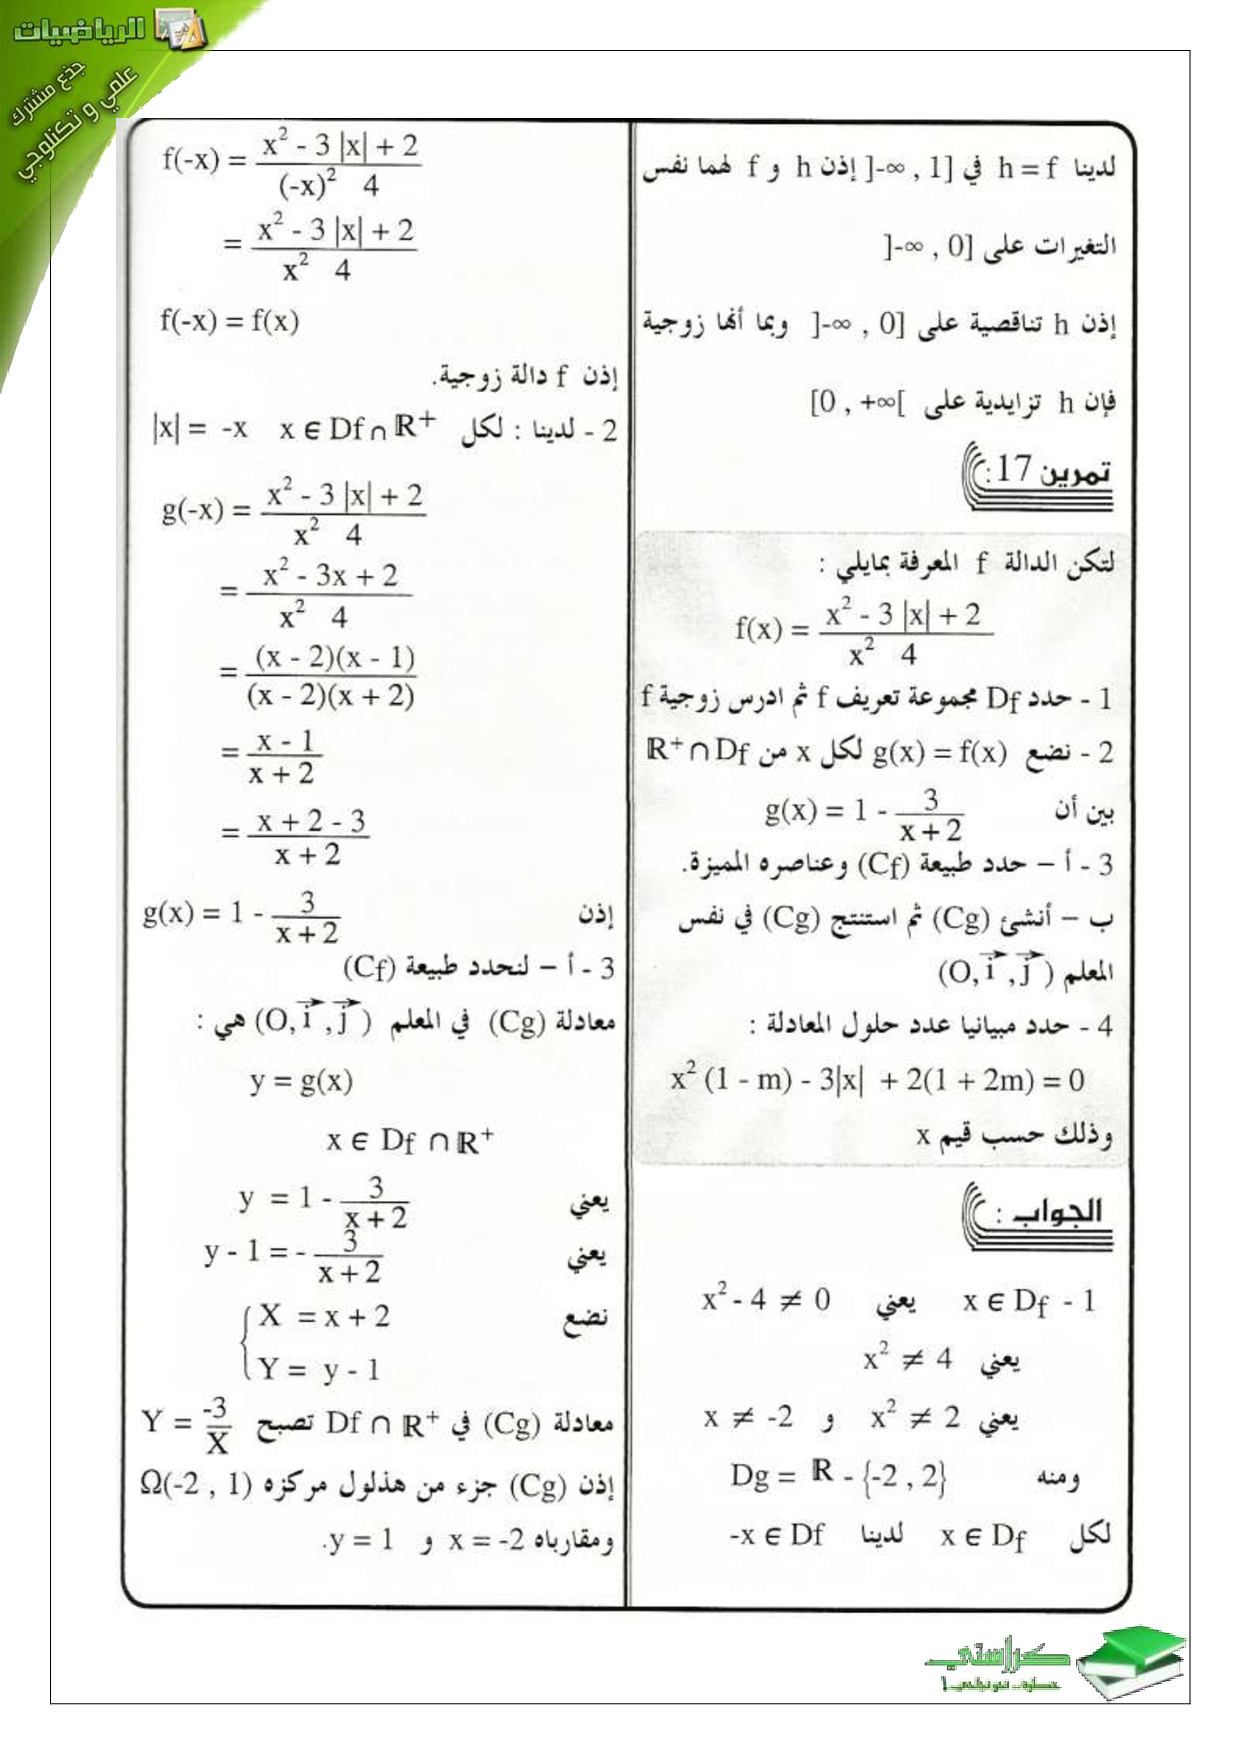 الرياضيات
جذع مشترك
علمي و تكنلوجي
لدينا h = f في ]-∞ , 1] إذن h و f لهما نفس
التغيرات على ]-∞ , 0]
إذن h تناقصية على ]-∞ , 0] وبما أنها زوجية
فإن h تزايدية على [0 , +∞[
تمرين 17 :
لتكن الدالة f المعرفة بمايلي :
f(x) = (x² - 3 |x| + 2) / (x² 4)
1 - حدد Df مجموعة تعريف f ثم ادرس زوجية f
2 - نضع g(x) = f(x) لكل x من ℝ⁺ ∩ Df
بين أن g(x) = 1 - 3/(x + 2)
3 - أ – حدد طبيعة (Cf) وعناصره المميزة.
ب – أنشئ (Cg) ثم استنتج (Cg) في نفس
المعلم (O, i⃗ , j⃗ )
4 - حدد مبيانيا عدد حلول المعادلة :
x² (1 - m) - 3|x| + 2(1 + 2m) = 0
وذلك حسب قيم x
الجواب :
1 - x ∈ Df يعني x² - 4 ≠ 0
يعني x² ≠ 4
يعني x² ≠ 2 و x ≠ -2
ومنه Dg = ℝ - {-2 , 2}
لكل x ∈ Df لدينا -x ∈ Df
f(-x) = (x² - 3 |x| + 2) / ((-x)² 4)
= (x² - 3 |x| + 2) / (x² 4)
f(-x) = f(x)
إذن f دالة زوجية.
2 - لدينا : لكل x ∈ Df ∩ ℝ⁺ |x| = -x
g(-x) = (x² - 3 |x| + 2) / (x² 4)
= (x² - 3x + 2) / (x² 4)
= (x - 2)(x - 1) / (x - 2)(x + 2)
= (x - 1) / (x + 2)
= (x + 2 - 3) / (x + 2)
إذن g(x) = 1 - 3/(x + 2)
3 - أ – لنحدد طبيعة (Cf)
معادلة (Cg) في المعلم (O, i⃗ , j⃗ ) هي :
y = g(x)
x ∈ Df ∩ ℝ⁺
يعني y = 1 - 3/(x + 2)
يعني y - 1 = - 3/(x + 2)
نضع { X = x + 2
Y = y - 1
معادلة (Cg) في Df ∩ ℝ⁺ تصبح Y = -3/X
إذن (Cg) جزء من هذلول مركزه Ω(-2 , 1)
ومقارباه x = -2 و y = 1.
كراستي